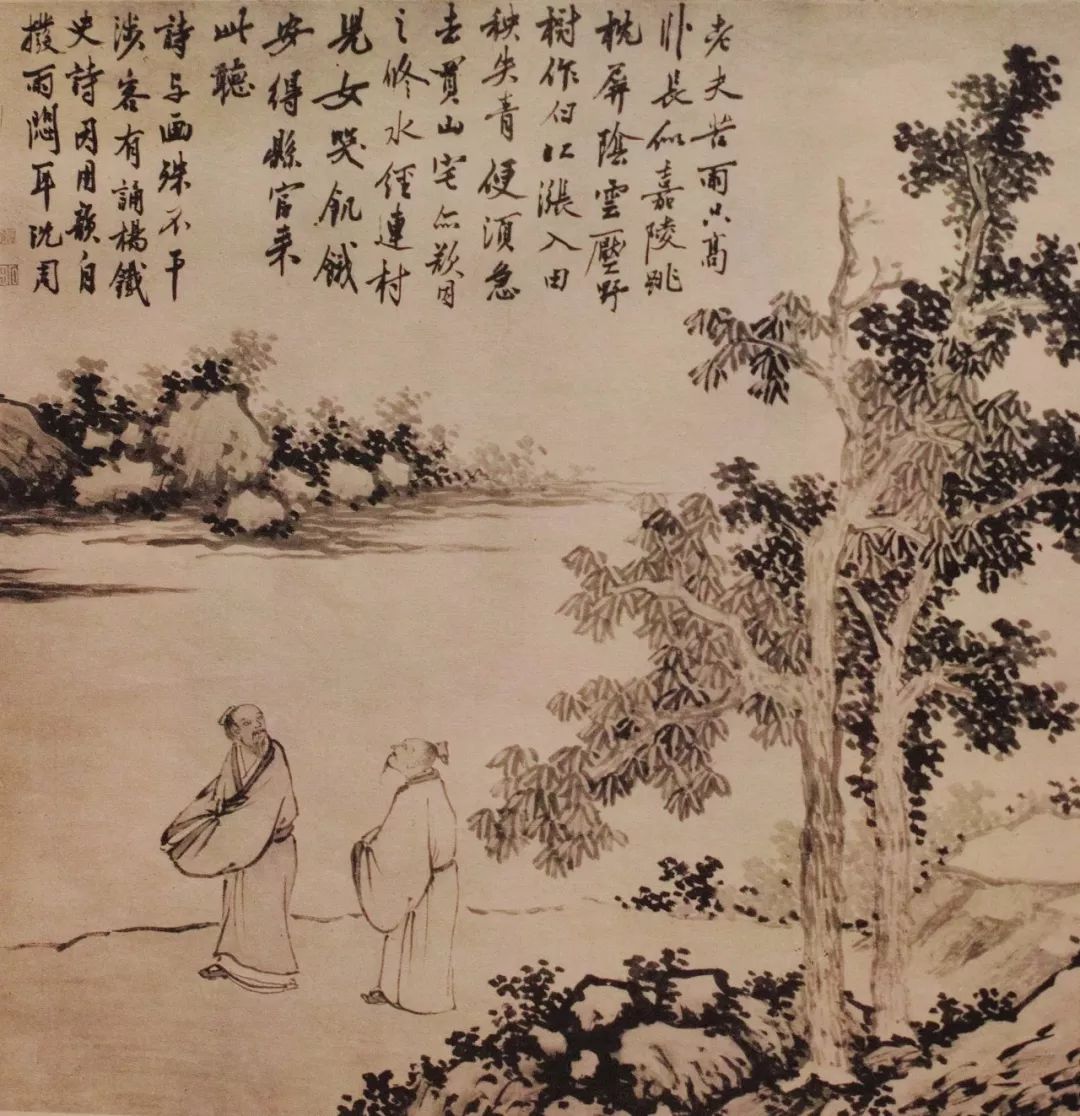 老夫苦雨只高
卧長似嘉陵眺
枕屏陰雲壓野
樹作白江漲入田
秧失青便須急
去買山宅亦欲因
之修水經連村
兒女哭飢餓
安得縣官来
此聽
詩与画殊不干
涉客有誦楊鐵
史詩因用韻自
撥雨悶耳沈周